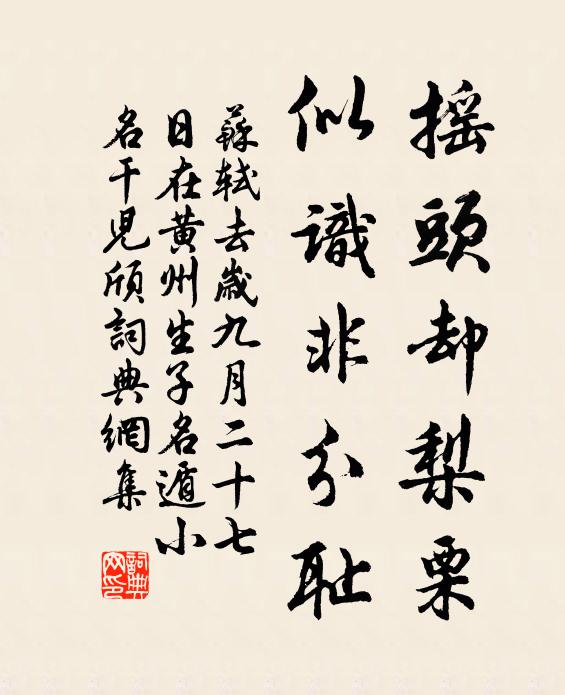 搖頭却梨栗
似識非分耻
蘇軾去歲九月二十七
日在黃州生子名遁小
名干兒頎詞典網集
詞典
网印